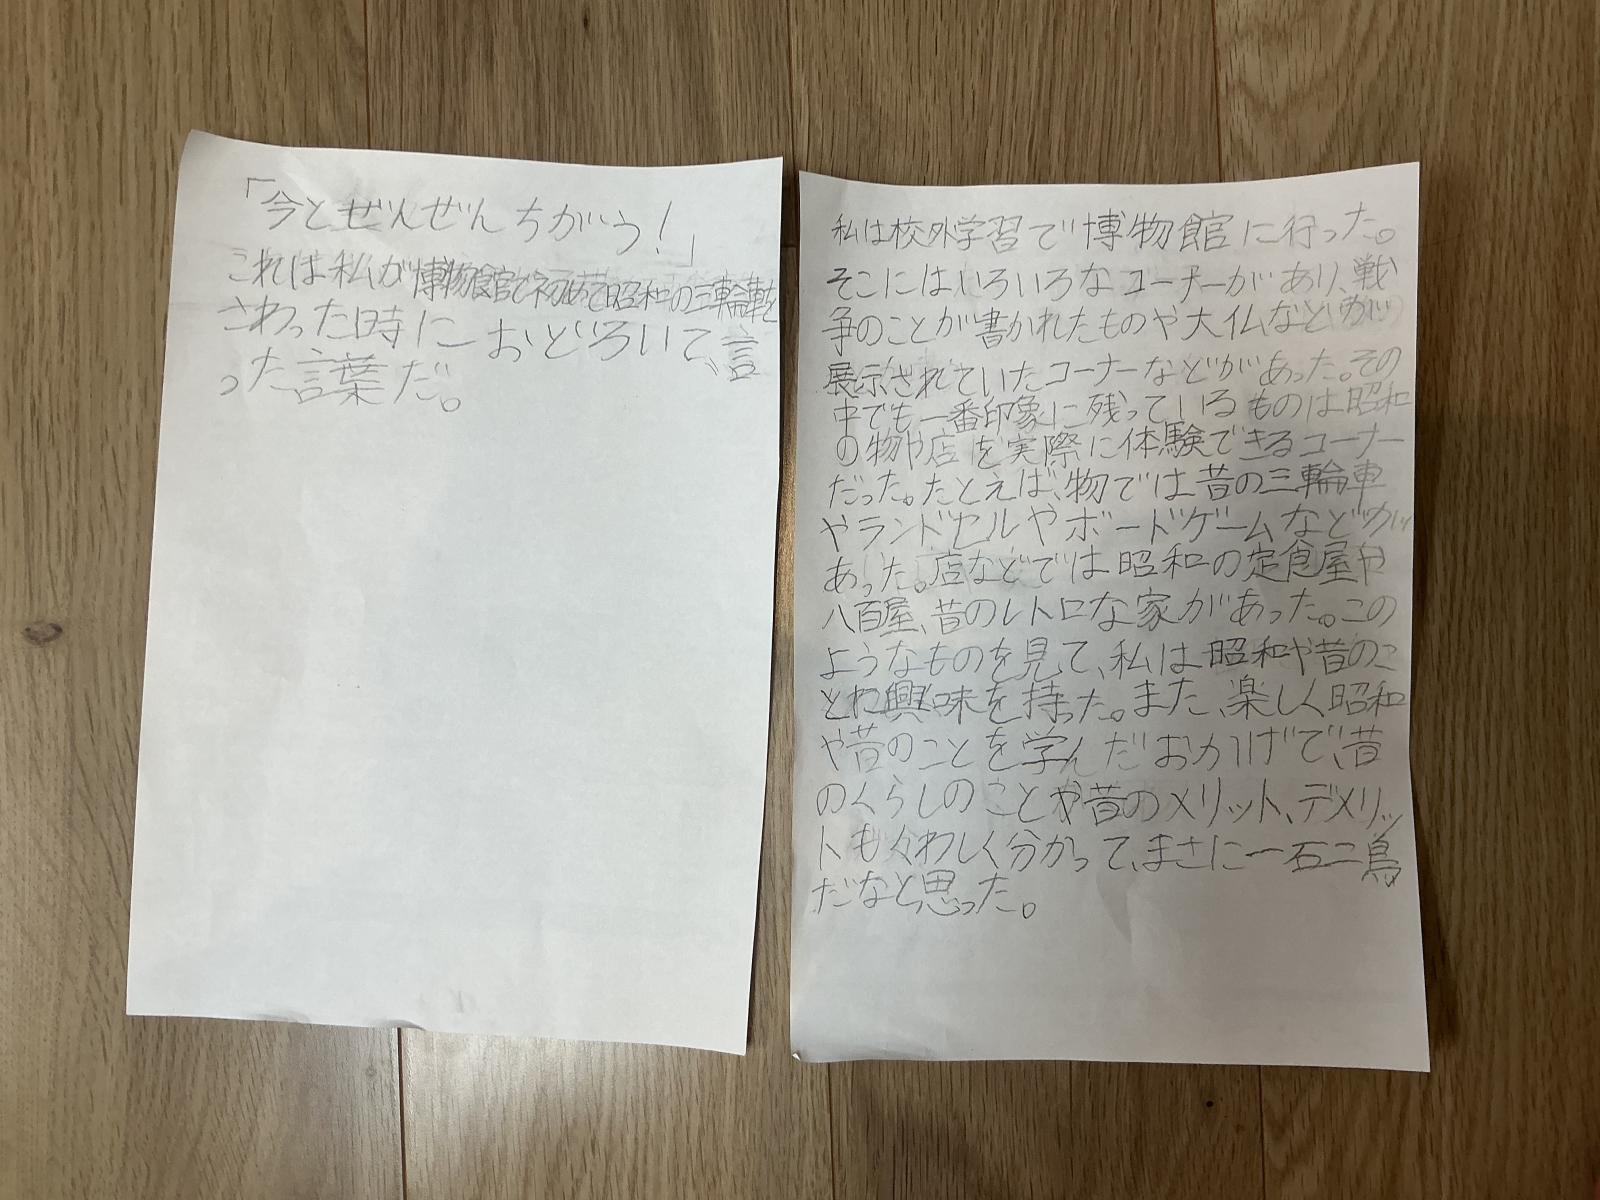 「今とぜんぜんちがう!」
これは私が博物館で初めて昭和の三輪車を
さわった時におどろいて、言
った言葉だ。
私は校外学習で博物館に行った。
そこにはいろいろなコーナーがあり、戦
争のことが書かれたものや大仏などが
展示されていたコーナーなどがあった。その
中でも一番印象に残っているものは昭和
の物や店を実際に体験できるコーナー
だった。たとえば、物では昔の三輪車
やランドセルやボードゲームなどが
あった。店などでは昭和の定食屋や
八百屋、昔のレトロな家があった。この
ようなものを見て、私は昭和や昔のこ
とに興味を持った。また、楽しく昭和
や昔のことを学んだおかげで、昔
のくらしのことや昔のメリット、デメリッ
トもくわしく分かって、まさに一石二鳥
だなと思った。